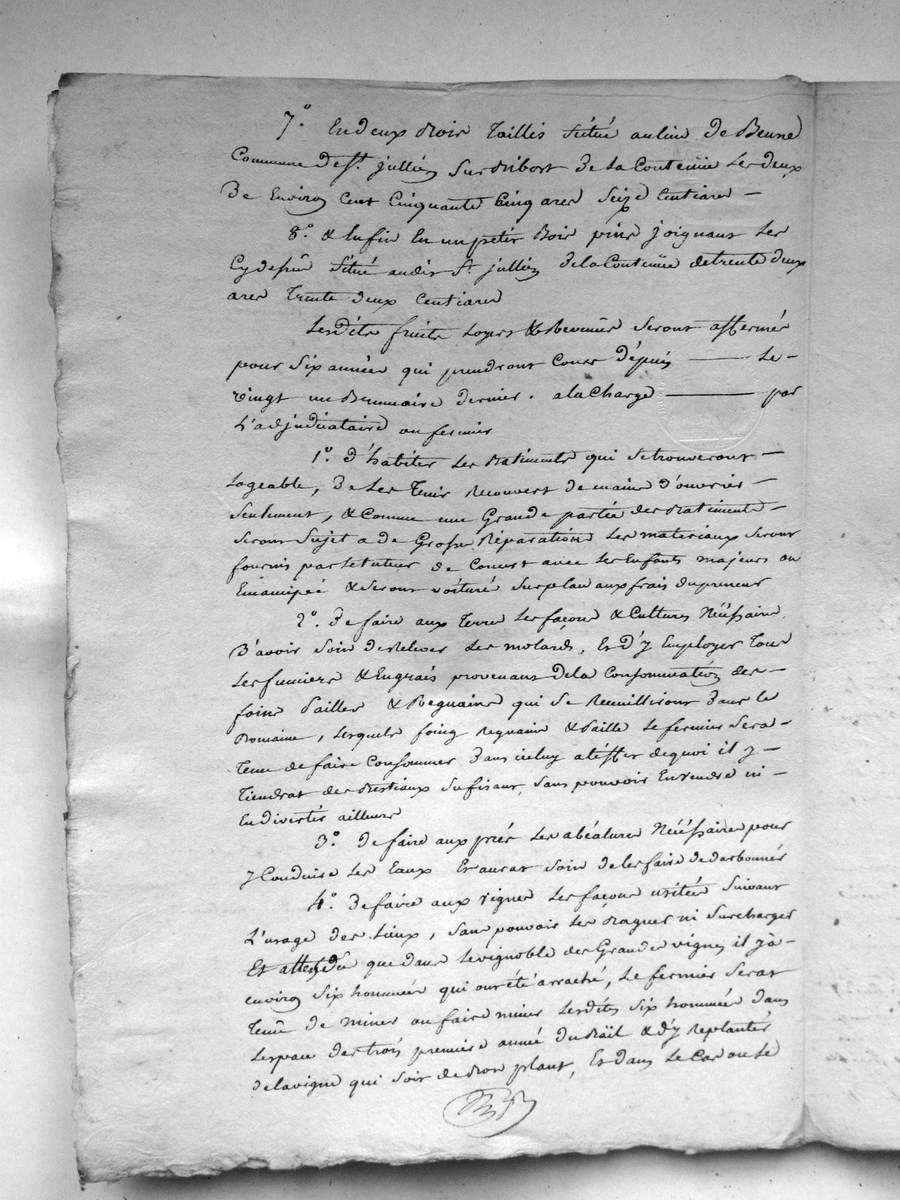 7.° En deux Bois Taillis situé au lieu de Beune
Commune de St. jullien Sur Bibost De la Contenüe Les deux
De Environ Cent Cinquante Cinq ares Seize Centiares —
8.° & Enfin En un petit Bois pins joignant Les
Cy dessus Situé au dit St. jullien De la Contenüe de trente deux
ares Trente deux Centiares
Lesdits fruits Loyers & Revenüs Seront affermés
pour Six années qui prendront Cours Dépuis — Le —
vingt un Brumaire dernier. a la Charge — par
L'adjudicataire ou fermier
1.° d'habiter Les Batiments qui Se trouveront —
Logeable, De Les Tenir Recouvert de mains d'ouvrier —
Seulement, & Comme une Grande partie des Batiments —
Seront Sujet a de Grosse Réparation Les materiaux Seront
fournis par Le tuteur de Concert avec Les Enfants majeurs ou
Emancipée & Seront voituré Sur plan aux frais du preneur
2.° De faire aux Terres Les façons & Cultures Nécéssaire.
D'avoir Soin de Relever Les molards, Et d'y Employer Tous
Les fumiers & Engrais provenant de la Consommation des —
foins Pailles & Reguains qui Se Recuilliront Dans Le
Domaine, Lesquels foing Reguain & Paille Le fermier Sera —
Tenu de faire Consommer Dans iceluy a l'effet de quoi il y —
Tiendrat des Bestiaux Sufisant, Sans pouvoir En vendre ni —
En divertir ailleurs
3.° De faire aux prés Les abéalures Nécéssaires pour
y Conduire Les Eaux Et aurat Soin de les faire dedarbonner
4.° De faire aux vignes Les façons usitées Suivant
L'usage des Lieux, Sans pouvoir Les Raguer ni Surcharger
Et attendu que dans Le vignoble des Grandes vignes il y à —
environ Six hommées qui ont été arraché, Le fermier Serat
Tenu de miner ou faire miner Lesdits Six hommées dans
L'espace des trois premiere année du Bail & d'y Replanter
de la vigne qui Soit de Bon plant, Et dans Le Cas ou Le